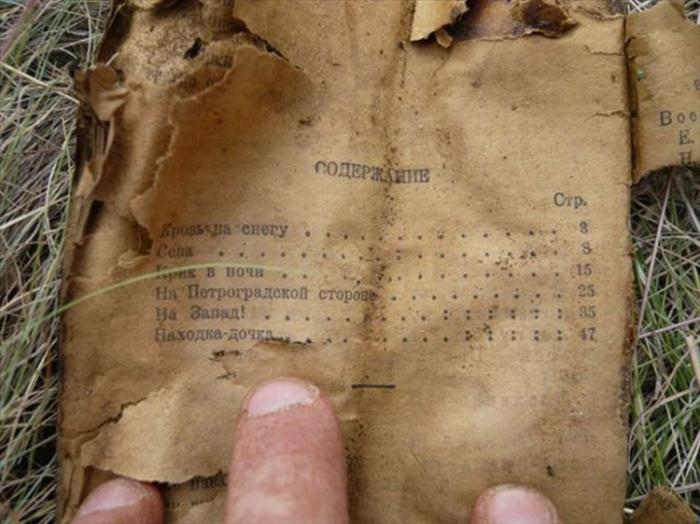 СОДЕРЖАНИЕ
Стр.
Кровь на снегу . . . . . . . . . . . . . . 3
Сева . . . . . . . . . . . . . . . . . . 8
Крик в ночи . . . . . . . . . . . . . . . 15
На Петроградской стороне . . . . . . . . . . 25
На Запад! . . . . . . . . . . . . . . . . 35
Находка-дочка . . . . . . . . . . . . . . 47
Вое
Е.